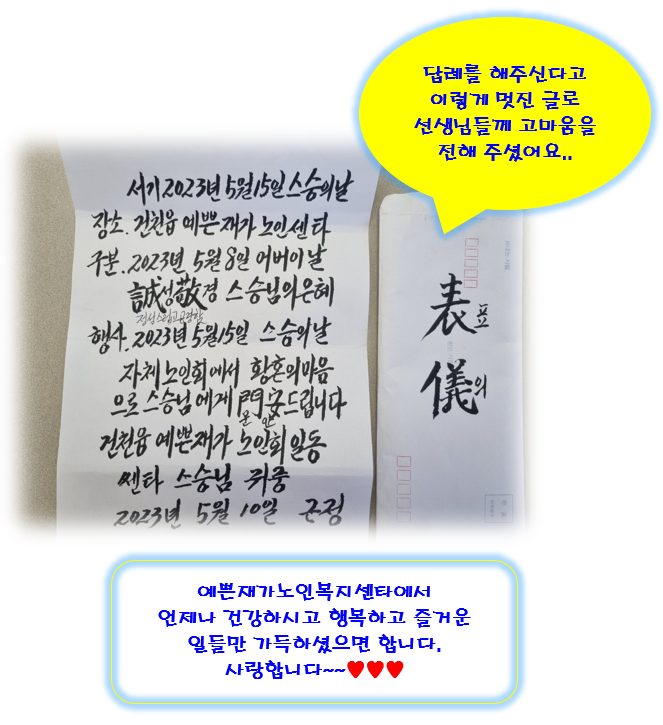 답례를 해주신다고
이렇게 멋진 글로
선생님들께 고마움을
전해 주셨어요..
서기 2023년 5월 15일 스승의날
장소. 건천읍 예쁜재가 노인센타
구분. 2023年 5월 8일 어버이날
誠성敬경 스승님의은혜
행사. 2023年 5月15일 스승의날
자체노인회에서 황혼의마음
으로 스승님에게 門安드립니다
건천읍 예쁜재가 노인회일동
쎈타 스승님 귀중
2023年 5月 10일 근정
表표
儀의
예쁜재가노인복지센타에서
언제나 건강하시고 행복하고 즐거운
일들만 가득하셨으면 합니다.
사랑합니다~~♥♥♥